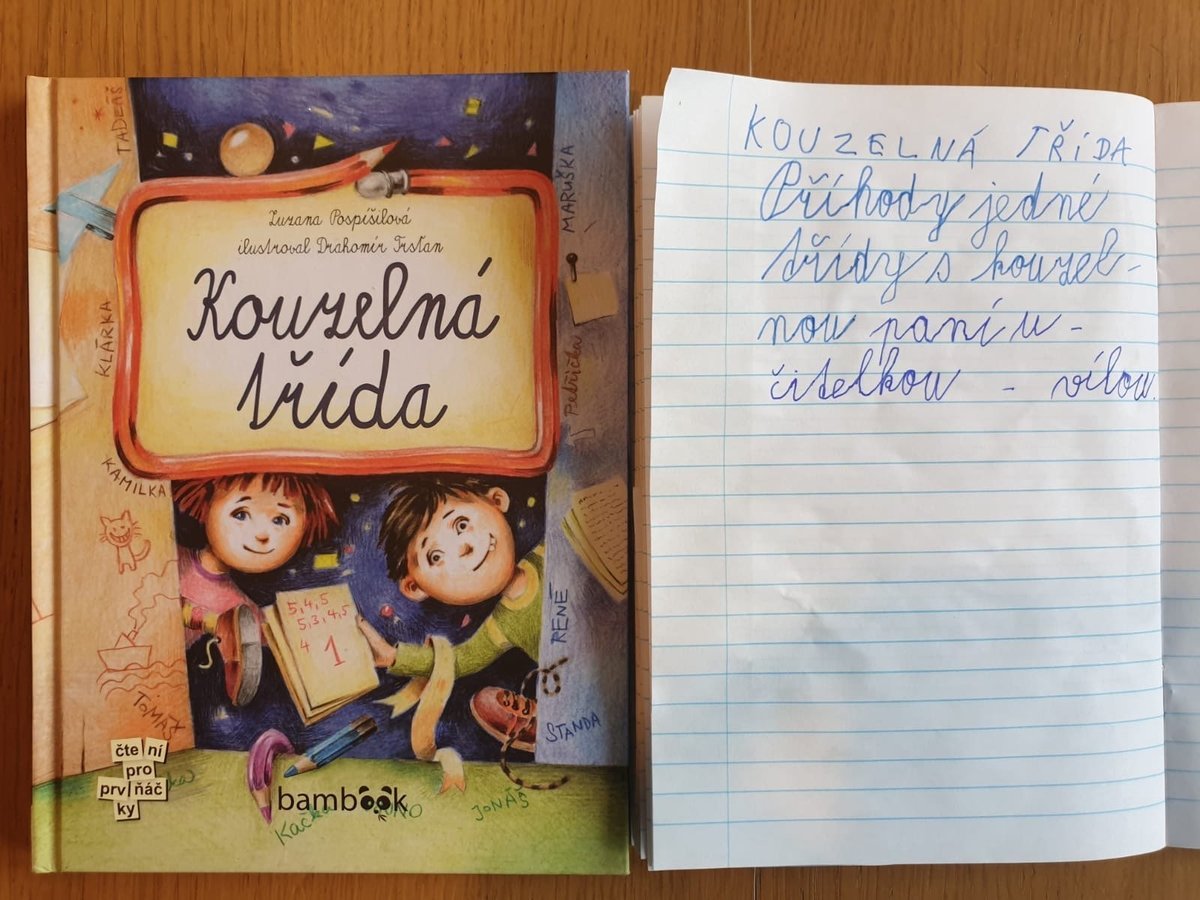 TADEÁŠ
MARUŠKA
Zuzana Pospíšilová
ilustroval Drahomír Trsťan
Kouzelná
třída
KLÁRKA
Petřička
KAMILKA
5,4,5
5,3,4,5
4
1
RENÉ
TOMÁŠ
STANDA
čte ní
pro
prv ňáč
ky
bambook
Kačka
JONÁŠ
KOUZELNÁ TŘÍDA
Příhody jedné
třídy s kouzel-
nou paní u-
čitelkou - vílou.